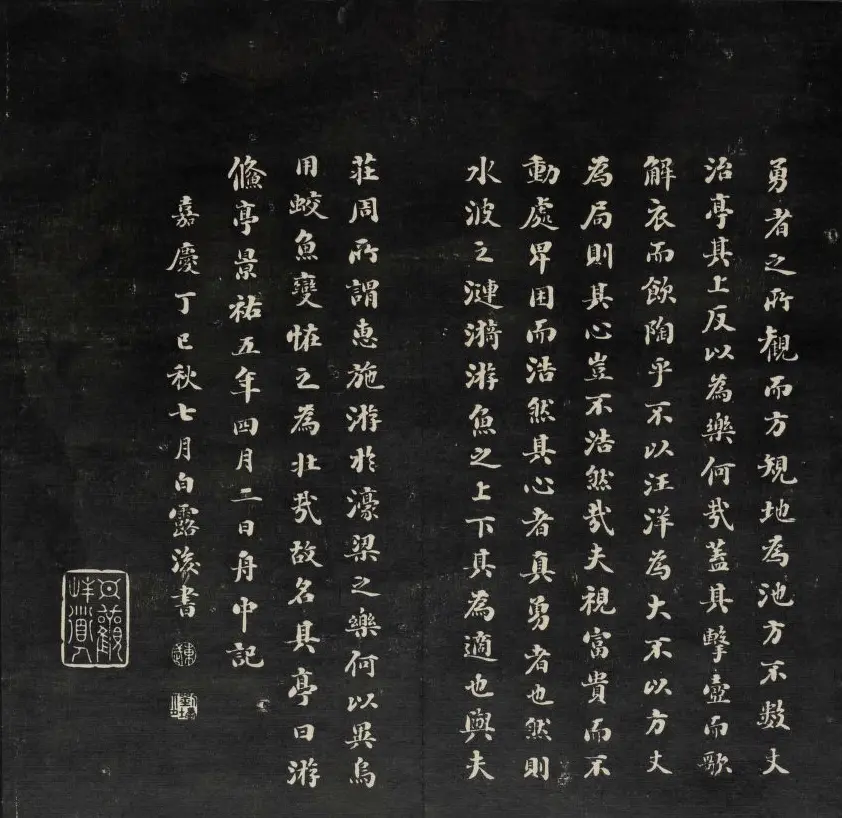 勇者之所觀而方規地為池方不數丈
治亭其上反以為樂何哉蓋其擊壺而歌
解衣而飲陶乎不以汪洋為大不以方丈
為局則其心豈不浩然哉夫視富貴而不
動處卑困而浩然其心者真勇者也然則
水波之漣漪游魚之上下其為適也與夫
莊周所謂惠施游於濠梁之樂何以異烏
用蛟魚變怪之為壯哉故名其亭曰游
鯈亭景祐五年四月二日舟中記
嘉慶丁巳秋七月白露後書
東武
劉墉